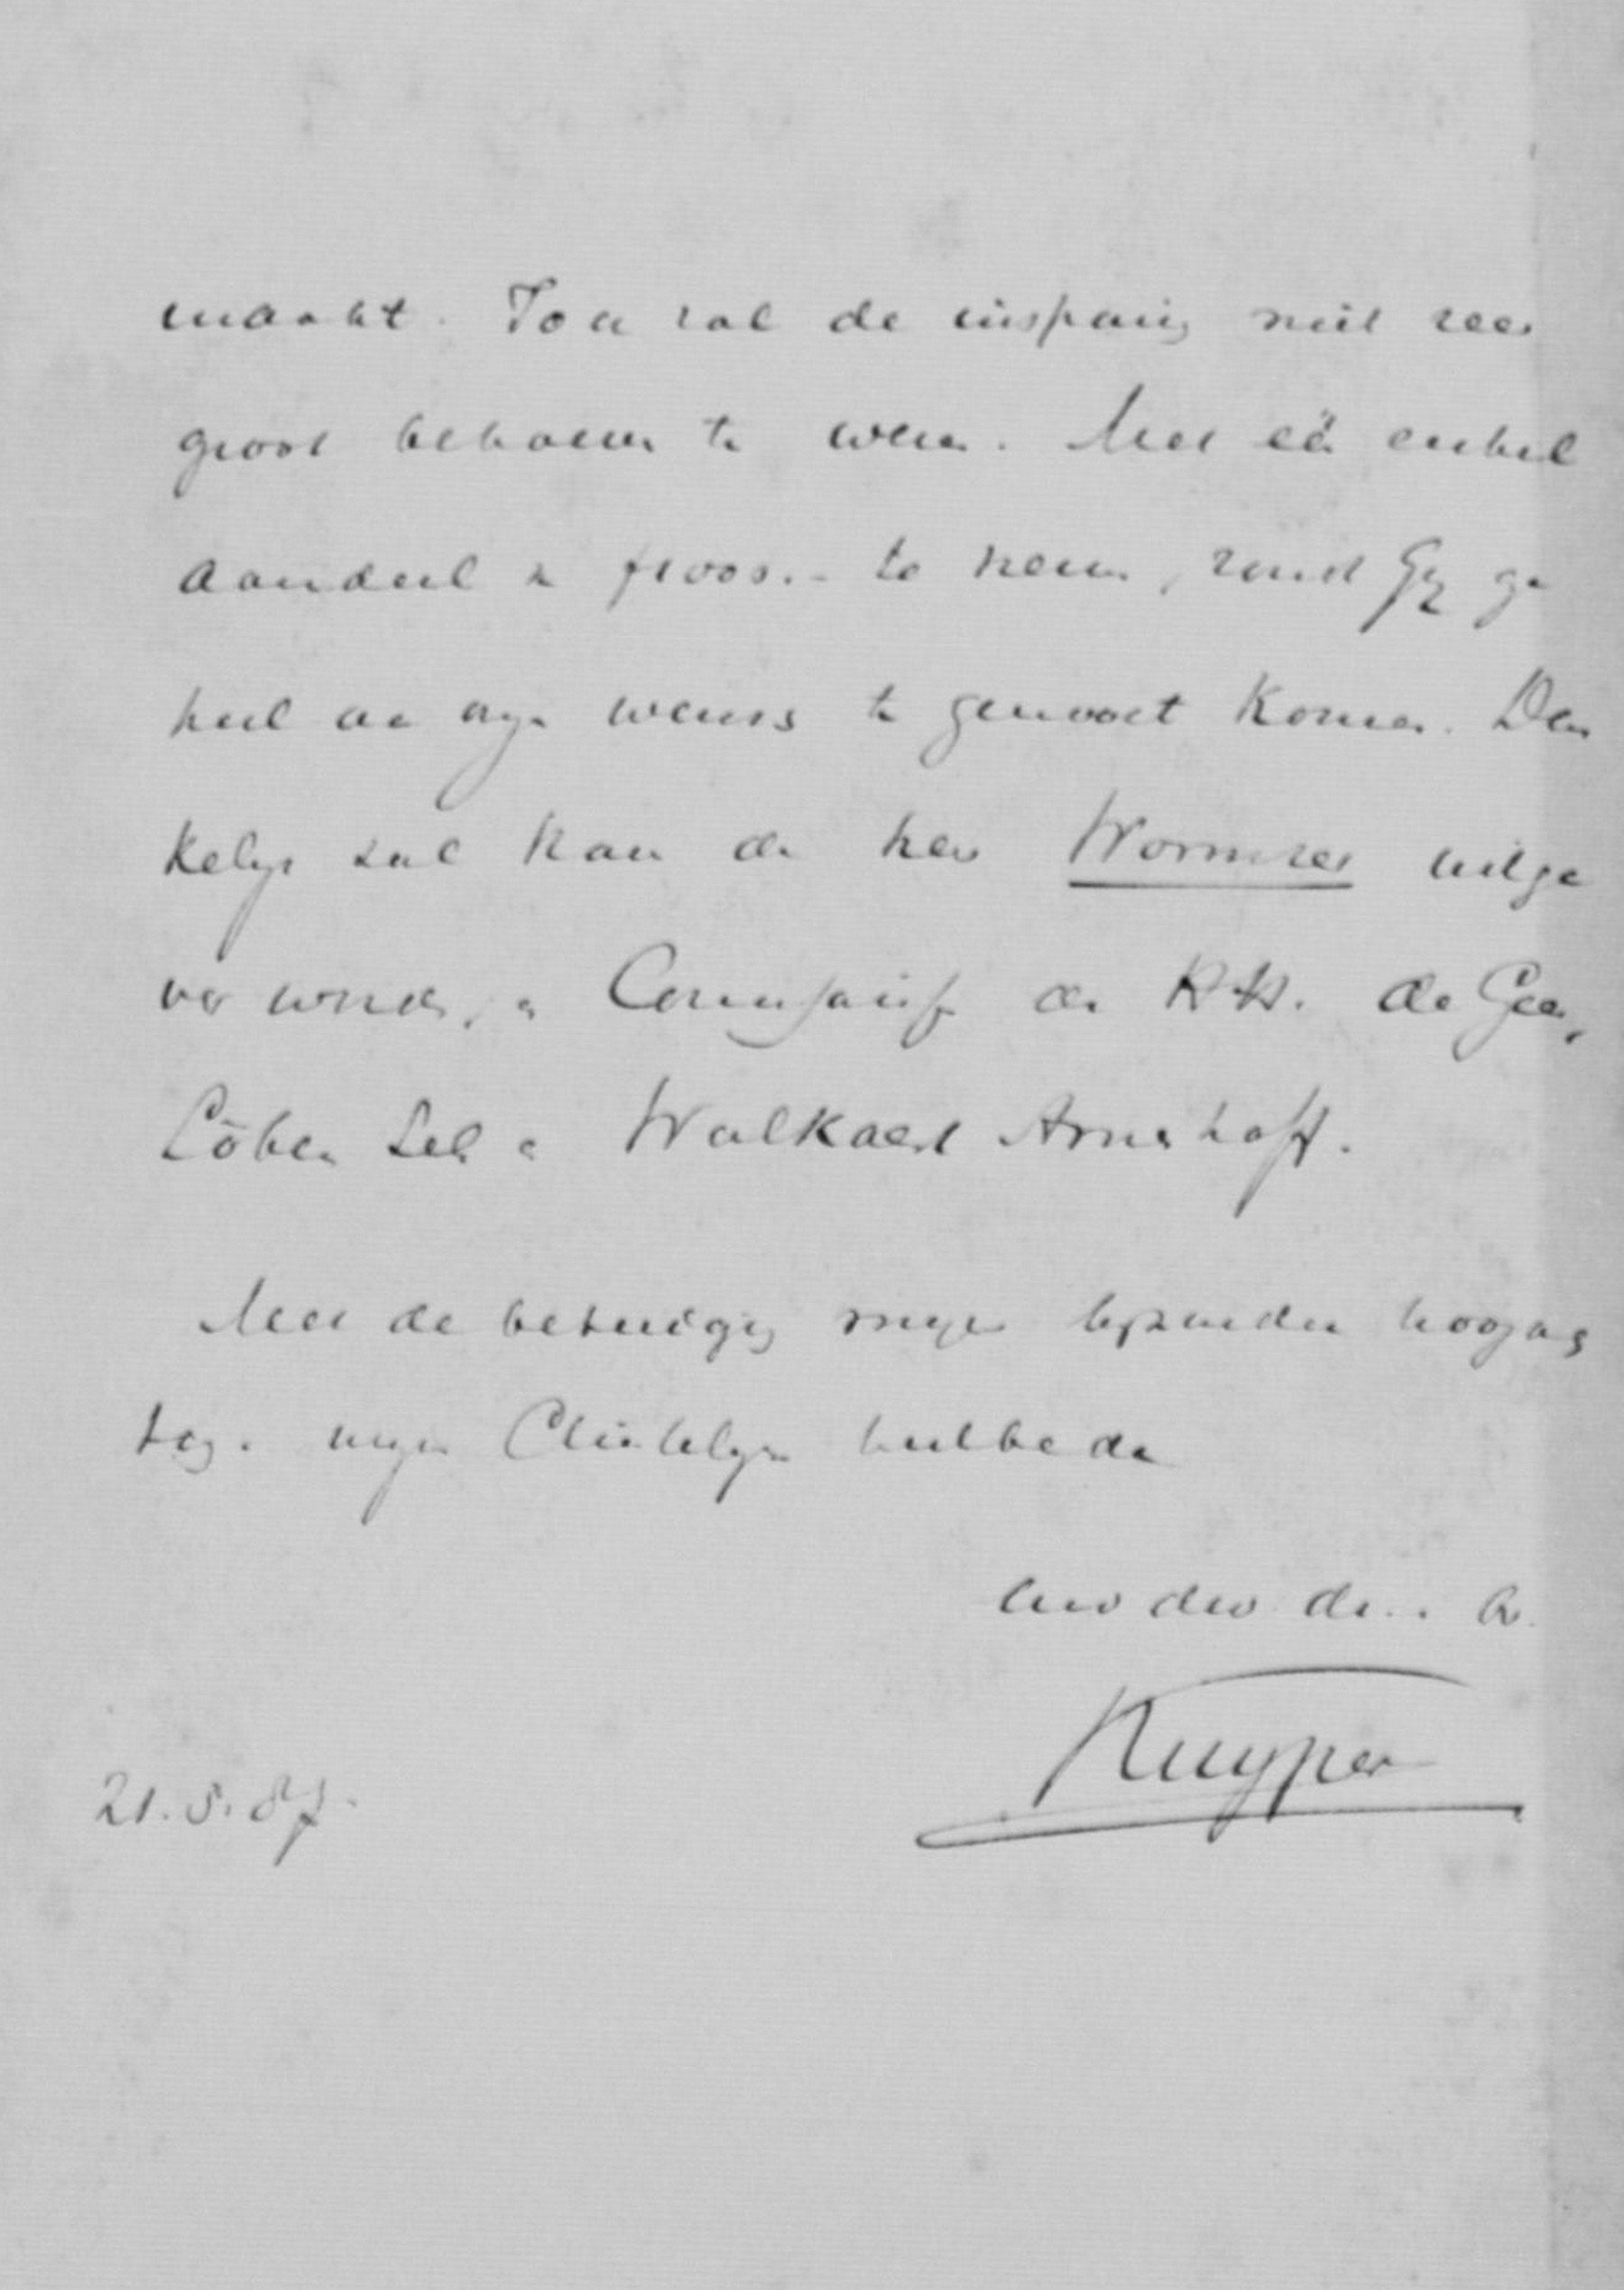 maakt. Toch zal de inspanning niet zeer
groot behoeven te wezen. Met één enkel
aandeel à f1000.- te nemen, zoudt Gij ge
heel aan mijn wensch te gemoet komen. Den
kelijk zal dan de heer Wormser uitge
ver worden, en Commissaris de HH. de Geer,
Löben Sels en Walkaert
Met de betuiging mijner bijzondere hoogach
ting en mijn Christelijke heilbede
Kuyper
21.5.87.